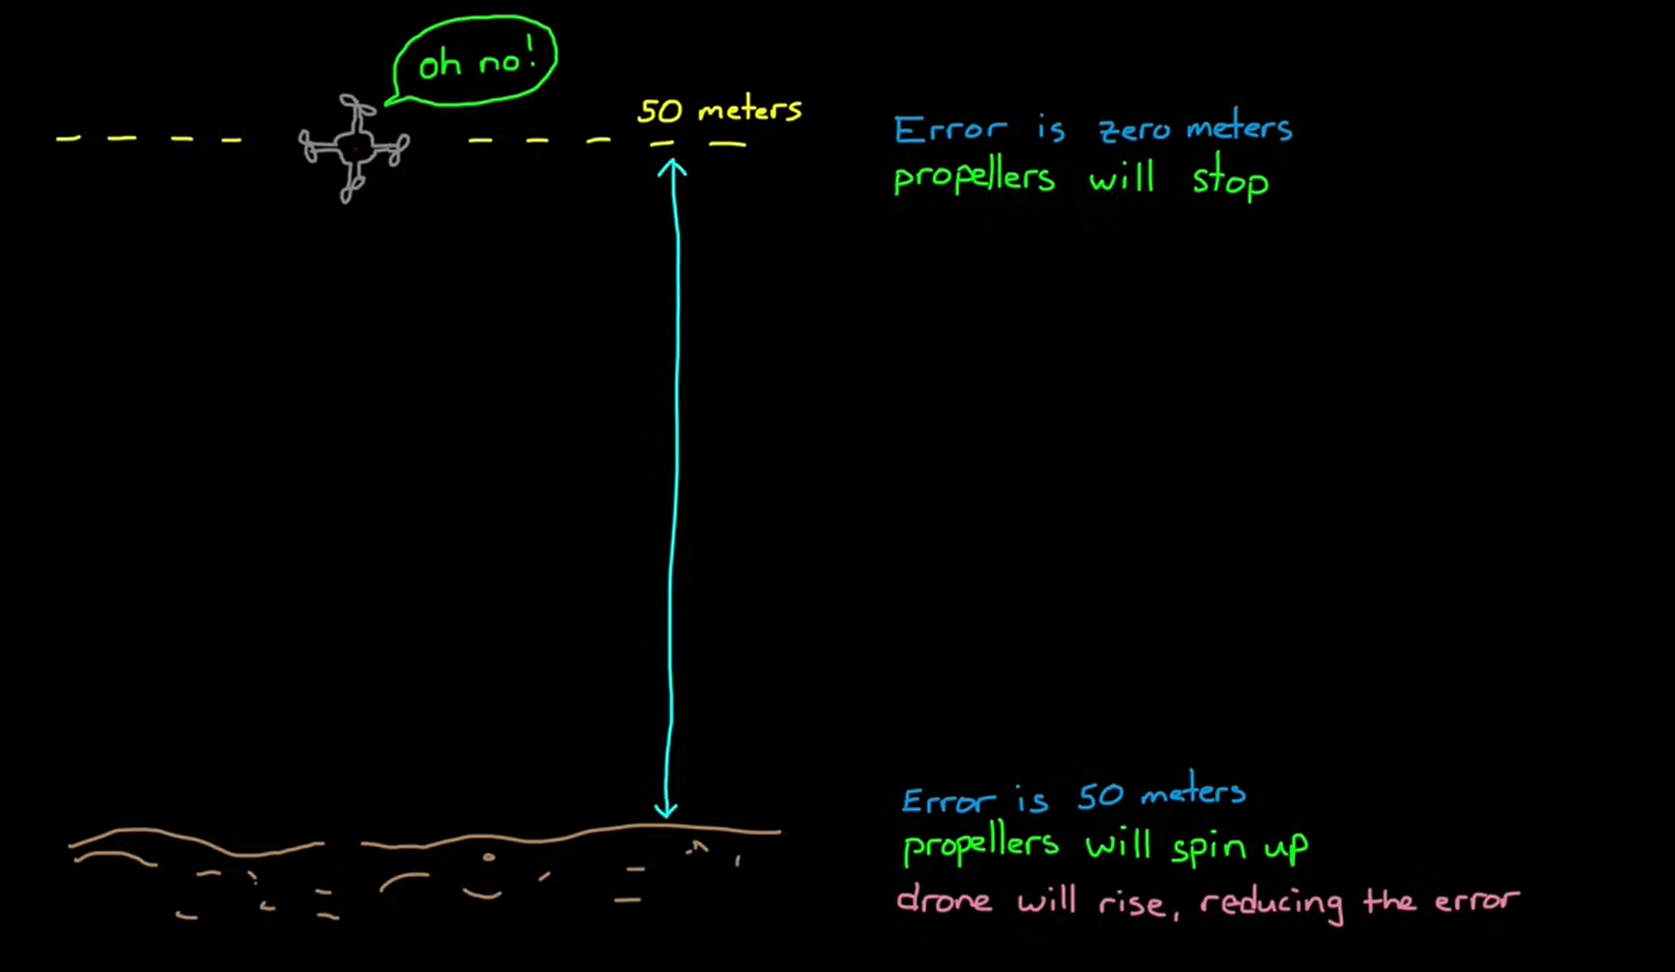 oh no!
50 meters
Error is zero meters
propellers will stop
Error is 50 meters
propellers will spin up
drone will rise, reducing the error